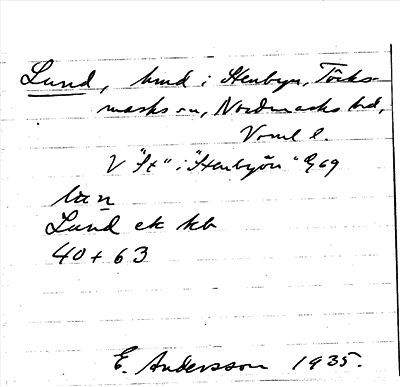 Lund, hmd i Stenbyn, Töcks-
marks sn, Nordmarks hd,
Vrml l.
V "St" i "Stenbyån" G 69
lun
Lund ek kb
40 + 63
E. Andersson 1935.